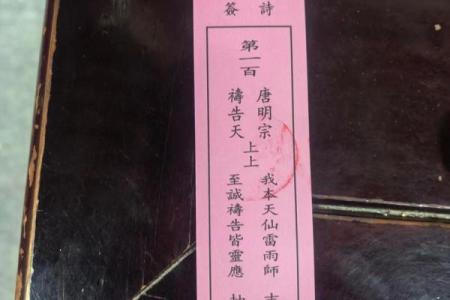 詩簽
第一百
唐明宗
禱告天
上上
我本天仙雷雨師
至誠禱告皆靈應